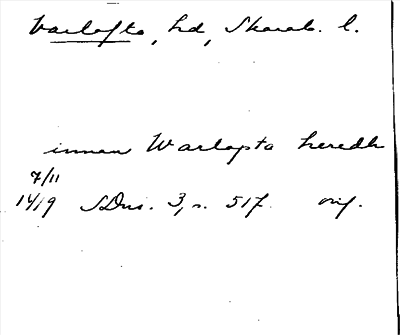 Varlofta, hd, Skarab. l.
innan Warlopta heredh
7/11
1419 SDns. 3, s. 517. orig.